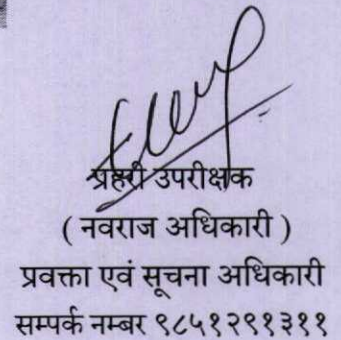 प्रहरी उपरीक्षक
( नवराज अधिकारी )
प्रवक्ता एवं सूचना अधिकारी
सम्पर्क नम्बर ९८५१२९१३११